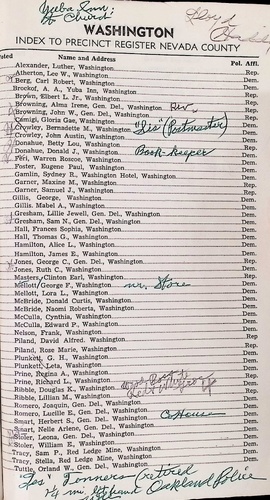 Yuba Inn;
Church
WASHINGTON
INDEX TO PRECINCT REGISTER NEVADA COUNTY
Name and Address Pol. Affl.
Alexander, Luther, Washington Rep.
Atherton, Lee W., Washington Rep.
Berg, Carl Robert, Washington Dem.
Brockof, A. A., Yuba Inn, Washington Dem.
Brown, Elbert L. Jr., Washington Rep.
Browning, Alma Irene, Gen. Del., Washington Rev. Dem.
Browning, John W., Gen. Del., Washington Dem.
Camisi, Gloria Gae, Washington Dem.
Crowley, Bernadette M., Washington "Sis" (Postmaster) Dem.
Crowley, John Austin, Washington Dem.
Donahue, Betty Lou, Washington Rep.
Donahue, Donald J., Washington Book-keeper Rep.
Feri, Warren Roscoe, Washington Dem.
Foster, Eugene Paul, Washington Dem.
Gamlin, Sydney R., Washington Hotel, Washington Dem.
Garner, Maxine M., Washington Rep.
Garner, Samuel J., Washington Rep.
Gillis, George, Washington Dem.
Gillis, Mabel A., Washington Dem.
Gresham, Lillie Jewell, Gen. Del., Washington Dem.
Gresham, Sam N., Gen. Del., Washington Dem.
Hall, Frances Sophia, Washington Dem.
Hall, Thomas G., Washington Dem.
Hamilton, Alice L., Washington Dem.
Hamilton, James E., Washington Dem.
Jones, George C., Gen. Del., Washington Rep.
Jones, Ruth C., Washington Dem.
Masters, Clinton Earl, Washington Rep.
Mellott, George F., Washington mr. Store Dem.
Mellott, Lora L., Washington Dem.
McBride, Donald Curtis, Washington Dem.
McBride, Naomi Roberta, Washington Dem.
McCulla, Cynthia, Washington Dem.
McCulla, Edward P., Washington Dem.
Nelson, Frank, Washington Dem.
Piland, David Alfred, Washington Rep.
Piland, Rose Marie, Washington Rep.
Plunkett, G. H., Washington Dem.
Plunkett, Leta, Washington Dem.
Prine, Regina A., Washington Dem.
Prine, Richard L., Washington Rep.
Ribble, Douglas K., Washington Dem.
Ribble, Lillian M., Washington Dem.
Romero, Joaquin, Gen. Del., Washington Dem.
Romero, Lucille E., Gen. Del., Washington Dem.
Smart, Herbert S., Gen. Del., Washington Dem.
Smart, Nelle Arlene, Gen. Del., Washington Dem.
Stoler, Leona, Gen. Del., Washington Dem.
Stoler, William E., Washington Dem.
Tracy, Sam P., Red Ledge Mine, Washington Dem.
Tracy, Stella, Red Ledge Mine, Washington Dem.
Tuttle, Orland W., Gen. Del., Washington Dem.
"Les" Conners (retired
Oakland Police